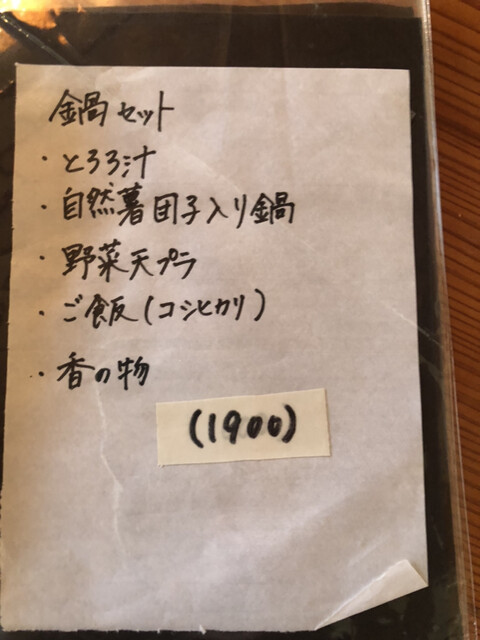 鍋セット
・とろろ汁
・自然薯団子入り鍋
・野菜天プラ
・ご飯(コシヒカリ)
・香の物
(1900)